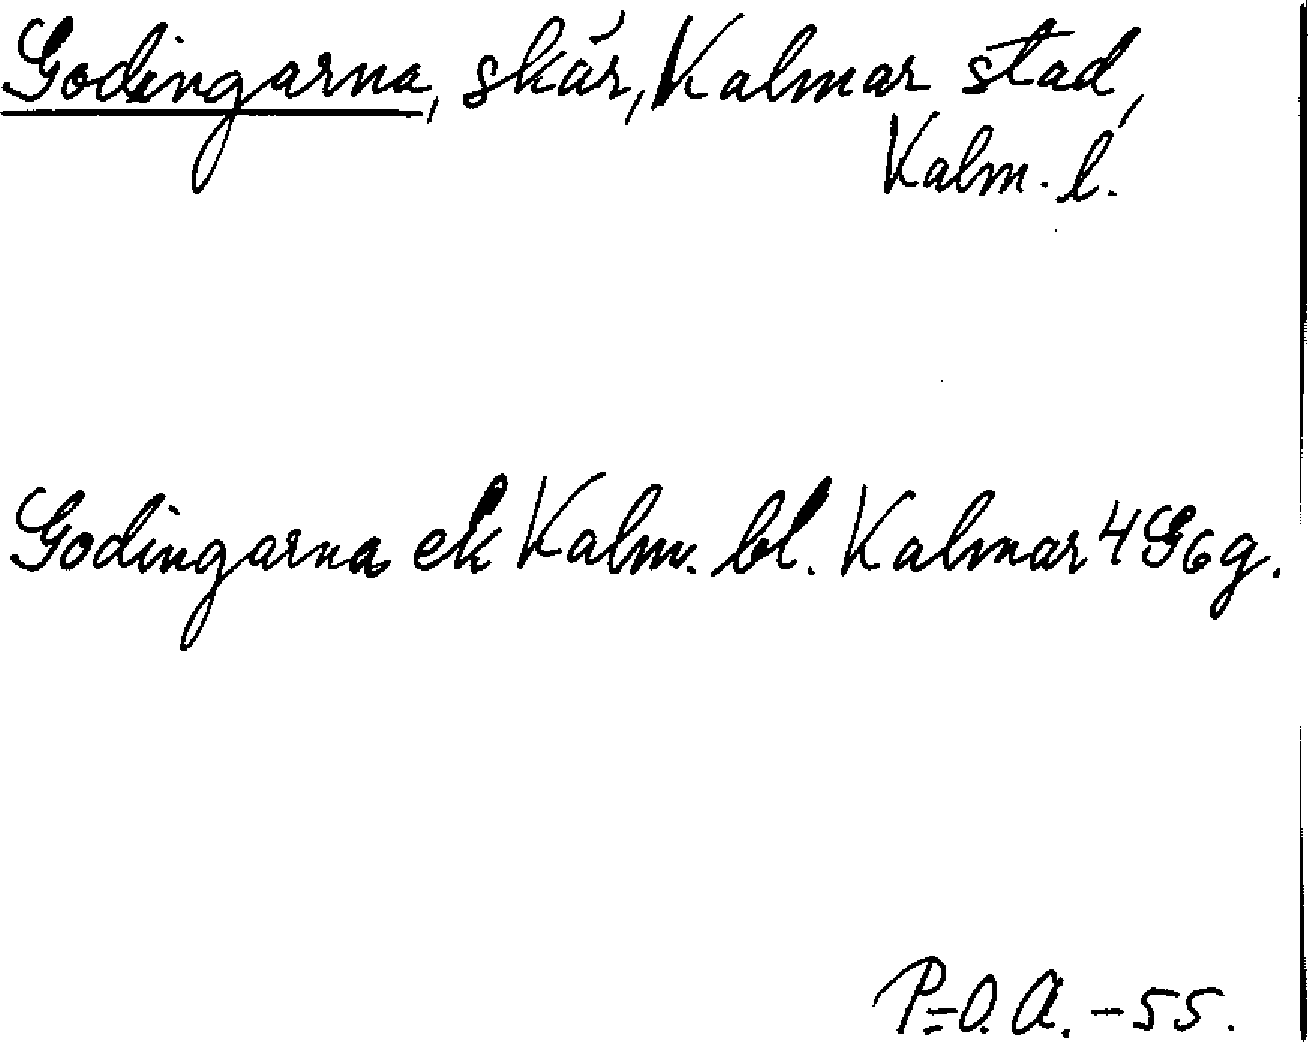 Godingarna, skär, Kalmar stad,
Kalm. l.
Godingarna ek Kalm. bl. Kalmar 4G6g.
P-O.A. -55.